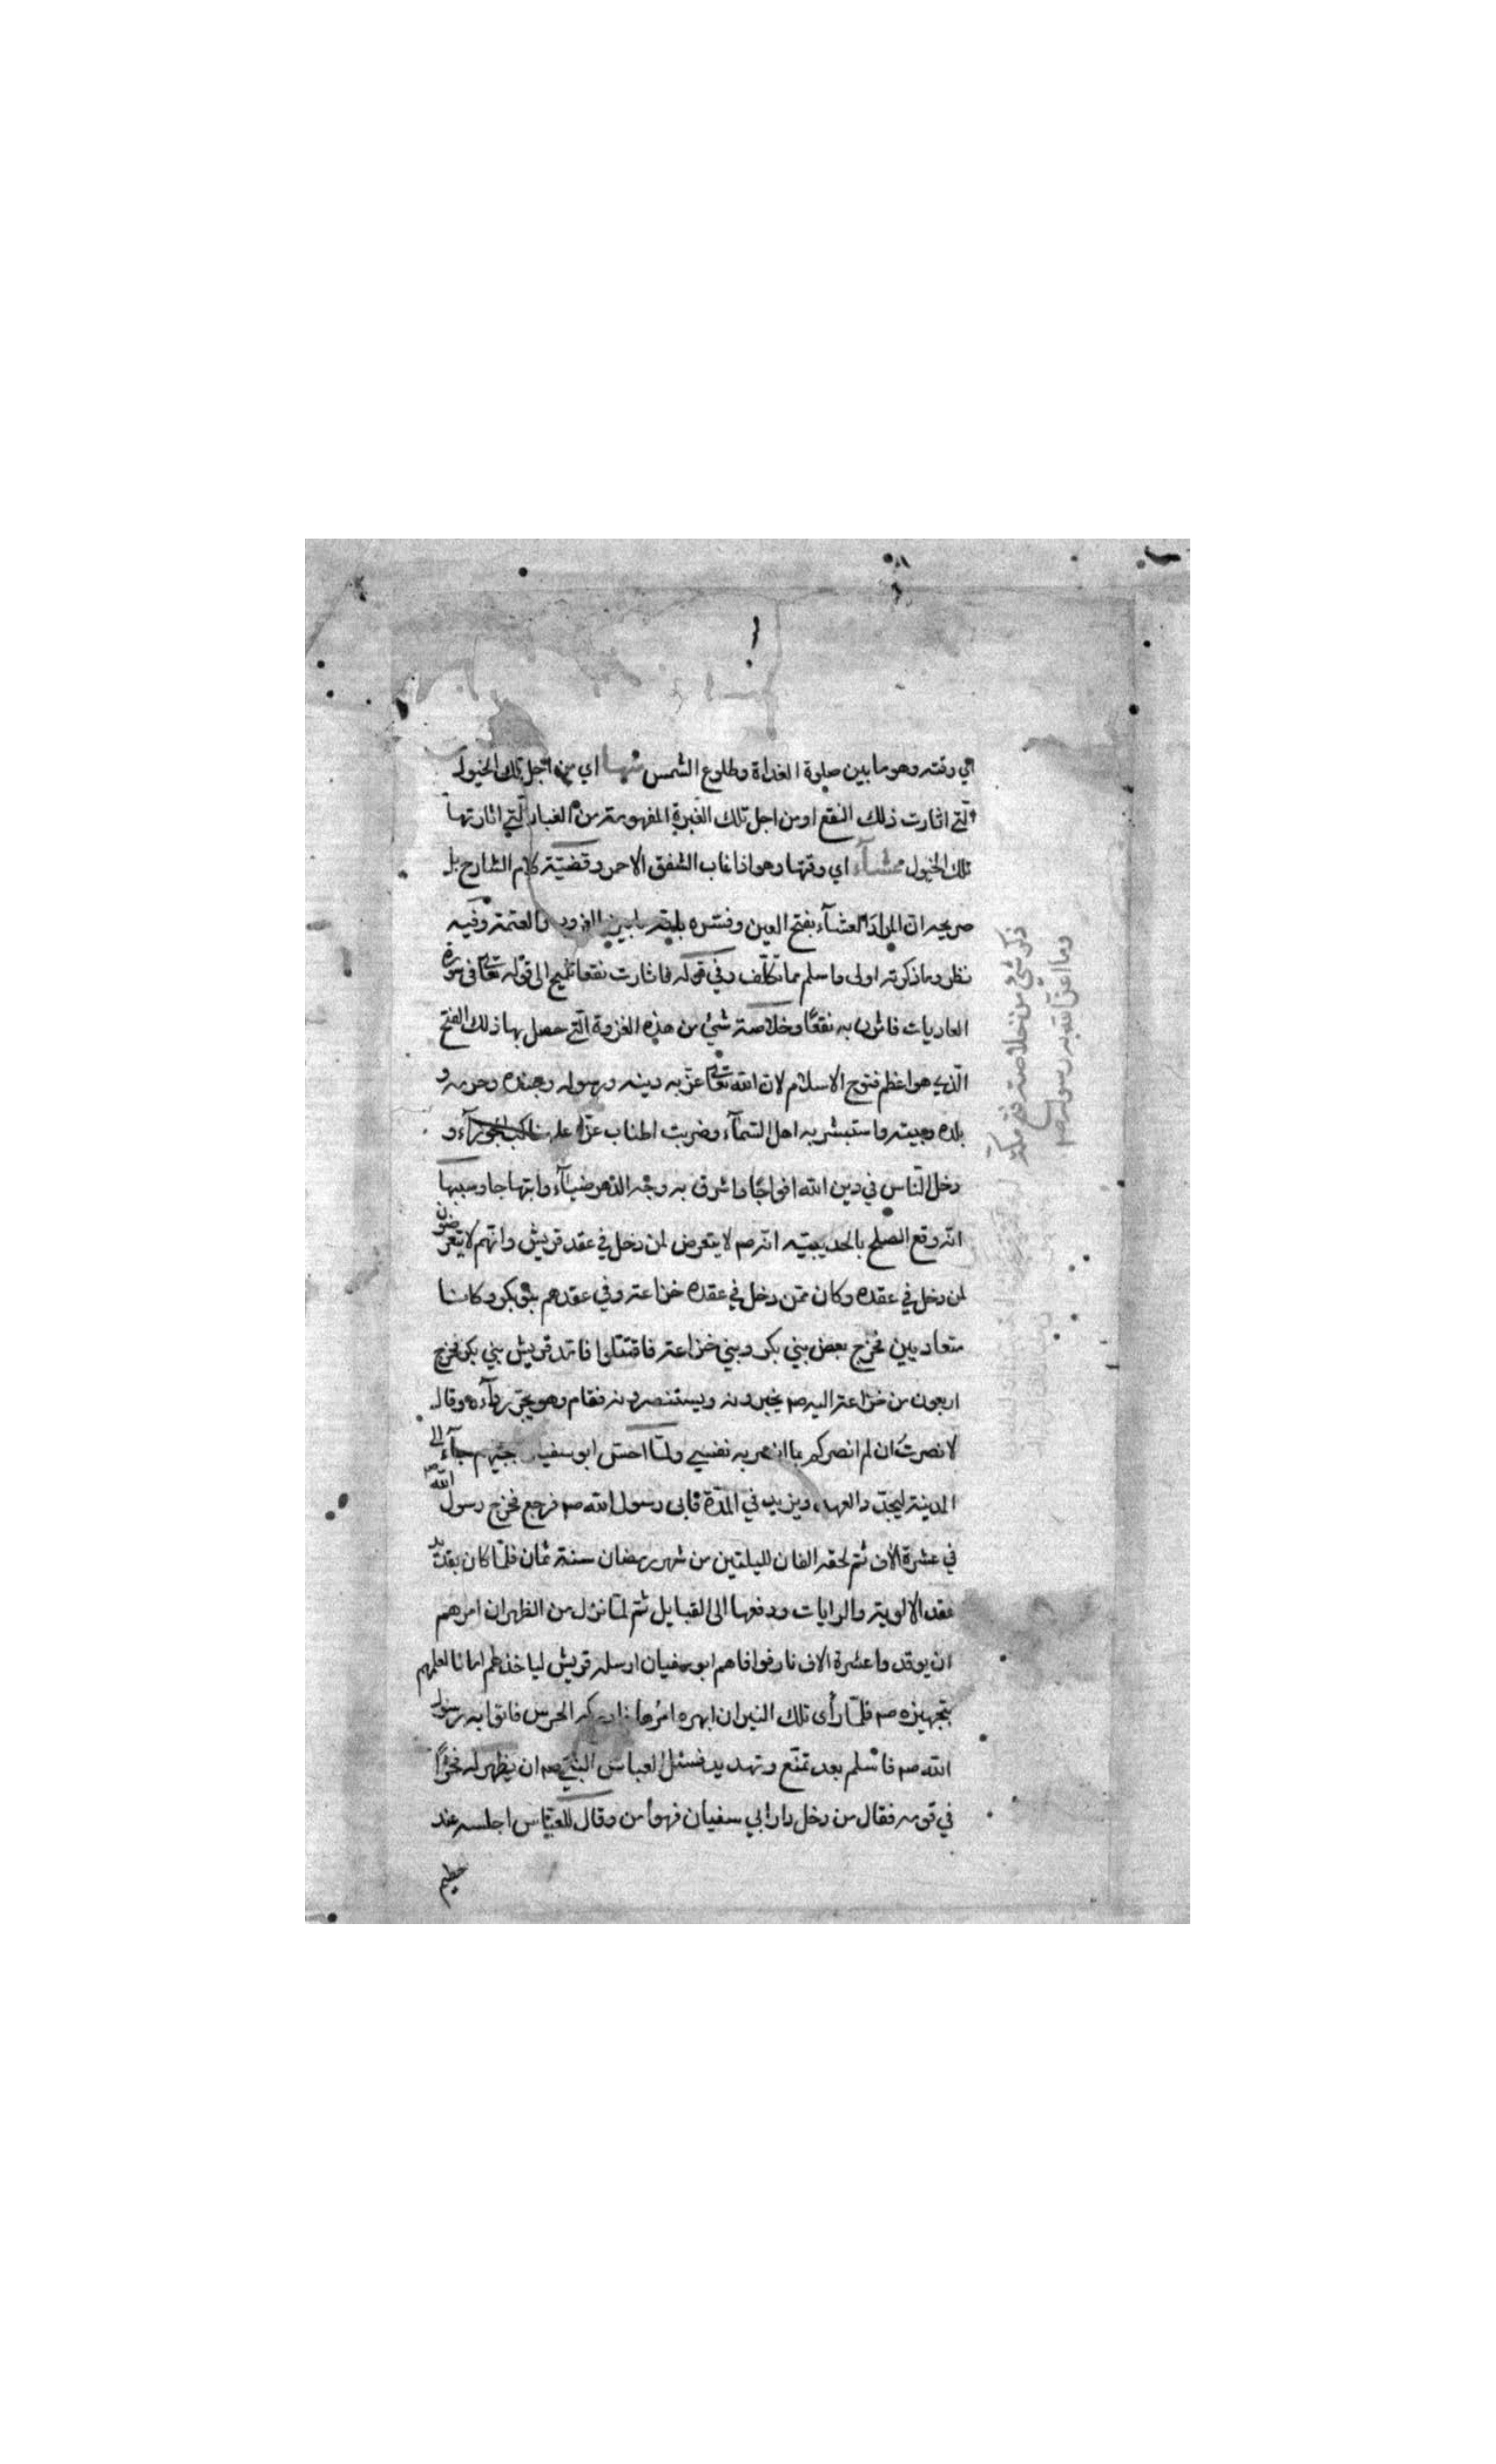 اي وقته وهو ما بين صلوة الغداة وطلوع الشمس منها اي من اجل تلك الخيول
التي اثارت ذلك النقع او من اجل تلك الغبرة المفهومة من الغبار التي اثارتها
تلك الخيول عشاء اي وقتها وهو اذا غاب الشفق الاحمر وقضية كلام الشارح بل
صريحه ان المراد العشاء بفتح العين وفسره بلدته ما بين والعتمة وفيه
نظر وما ذكرته اولى واسلم مما تكلف وفي قوله فاثارت نقعا تلميح الى قوله تعالى في سورة
العاديات فاثرن به نقعًا وخلاصة شيء من هذه الغزوة التي حصل بها ذلك الفتح
الذي هو اعظم فتوح الاسلام لان الله تعالى اعز به دينه ورسوله وجنده وحرمه و
بلده وبيته واستبشر به اهل السماء وضربت اطناب عزه على مناكب الجوزاء و
دخل الناس في دين الله افواجًا واشرق به وجه الدهر ضياء وابتهاجا وسببها
انه وقع الصلح بالحديبية انه صم لا يتعرض لمن دخل في عقد قريش وانهم لا يتعرضون
لمن دخل في عقده وكان ممن دخل في عقده خزاعة وفي عقدهم بنو بكر وكانتا
متعاديين فخرج بعض بني بكر وبني خزاعة فاقتتلوا فامد قريش بني بكر فخرج
اربعون من خزاعة اليه صم يخبرونه ويستنصرونه فقام وهو يجر رداءه وقال
لا نصرت ان لم انصركم بما انصر به نفسي ولما احس ابو سفيان بمجيئهم جاء الى
المدينة ليجدد العهد ويزيد في المدة فابى رسول الله صم فرجع فخرج رسول الله صم
في عشرة الاف ثم لحقه الفان لليلتين من شهر رمضان سنة ثمان فلما كان بقديد
عقد الالوية والرايات ودفعها الى القبايل ثم لما نزل من الظهران امرهم
ان يوقدوا عشرة الاف نار فوافاهم ابو سفيان ارسله قريش لياخذ لهم امانا لعلمهم
بتجهيزه صم فلما رأى تلك النيران ابهره امرها الحرس فاتوا به رسول
الله صم فاسلم بعد تمنع وتهديد فسئل العباس النبي صم ان يظهر له فخرًا
في قومه فقال من دخل دار ابي سفيان فهو أمن وقال للعباس اجلسه عند
خطيم
ذكر شيء من خلاصة فتح مكة
وما اعز الله به رسوله صم